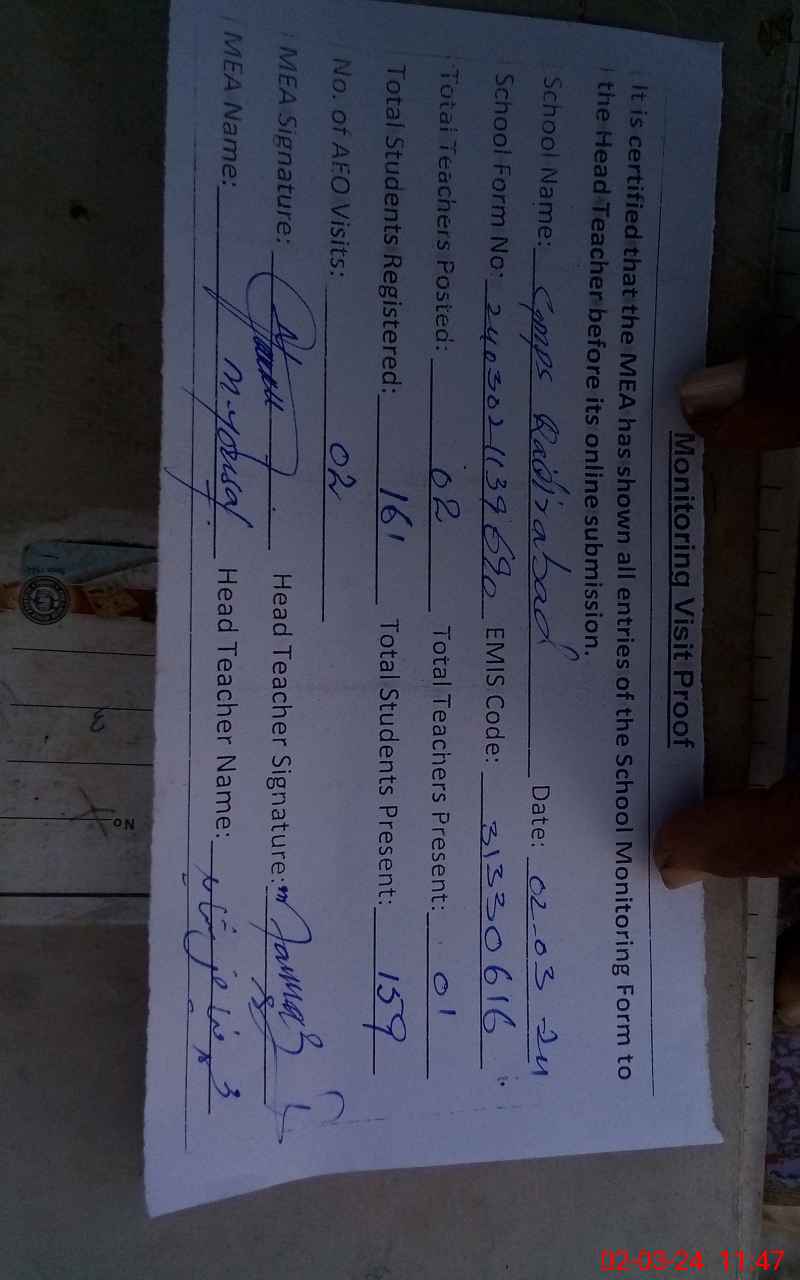 Monitoring Visit Proof
It is certified that the MEA has shown all entries of the School Monitoring Form to
the Head Teacher before its online submission.
School Name: GMPS Date: 02-03-24
School Form No: 2403021139690 EMIS Code: 31330616
Total Teachers Posted: 02 Total Teachers Present: 01
Total Students Registered: 161 Total Students Present: 159
No. of AEO Visits: 02
MEA Signature: Head Teacher Signature:
MEA Name: M. Yousaf Head Teacher Name:
No
02-03-24 11:47